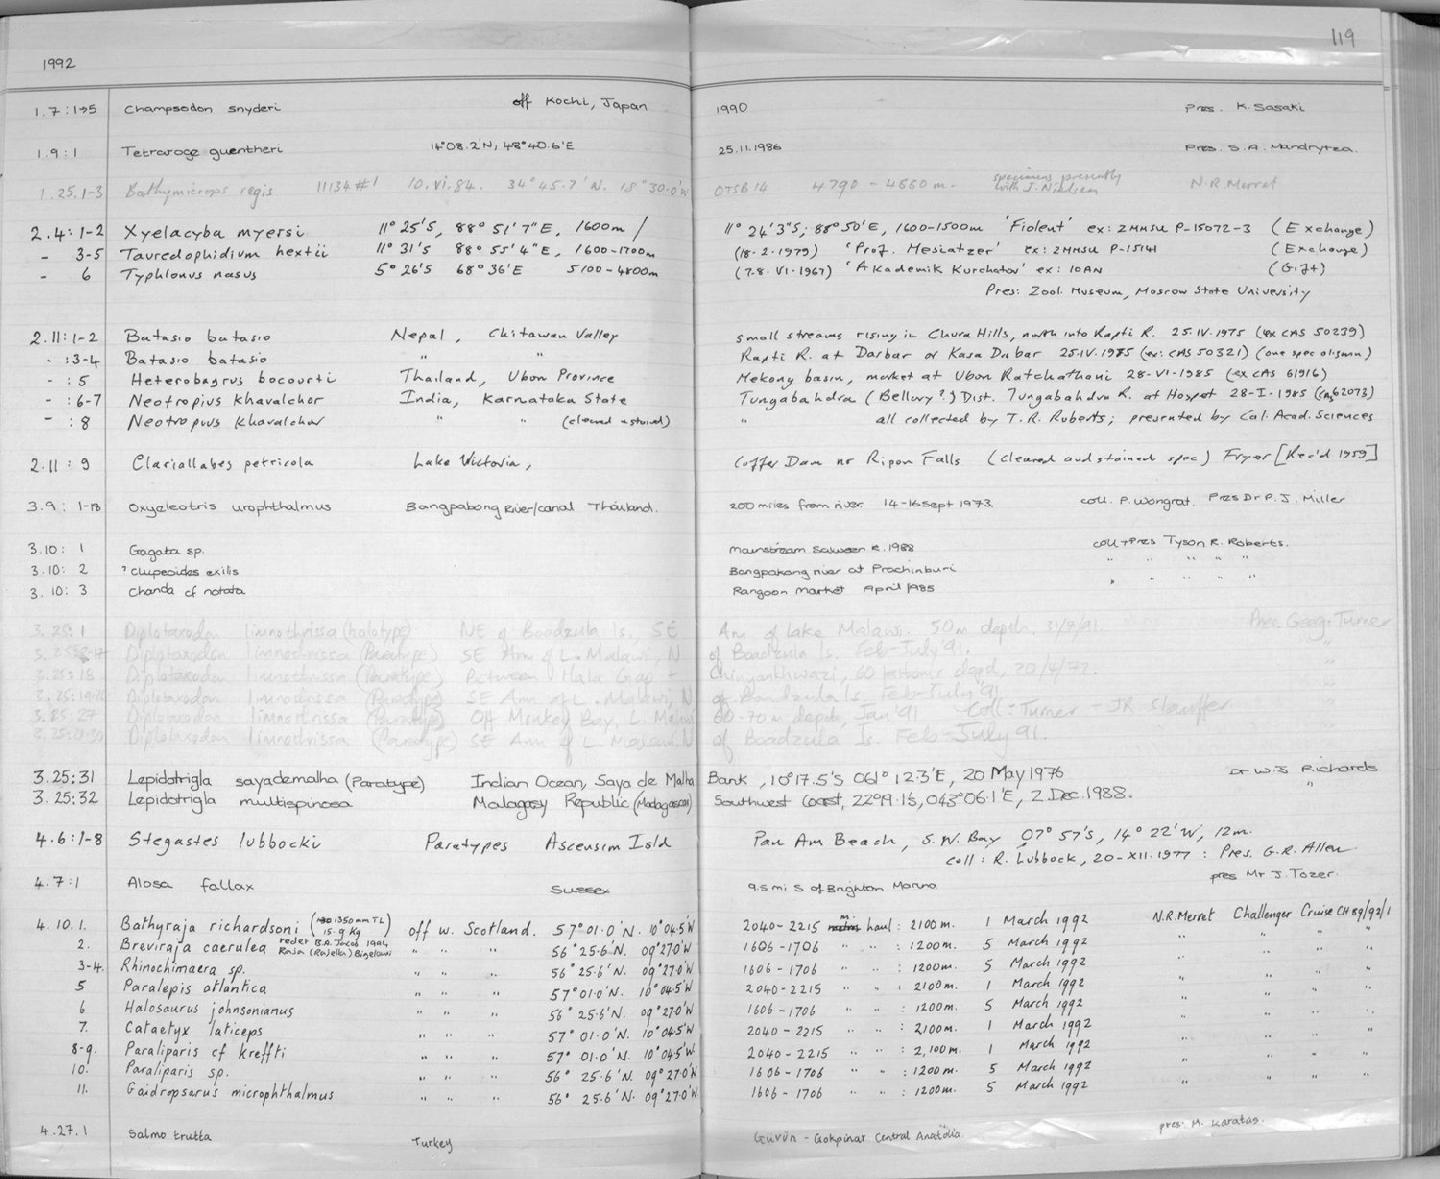 119
1992
1.7:1→5 Champsodon snyderi off Kochi, Japan 1990 Pres. K. Sasaki
1.9:1 Tetraroge guentheri 14°08.2'N, 48°40.6'E 25.11.1986 Pres. S.A. Mandrytza.
1.25.1-3 Bathymicrops regis 11134#1 10.vi.84. 34°45.7'N. 18°30.0'W OTSB14 4790-4660m. specimens presently with J. Nielsen N.R. Merret
2.4:1-2 Xyelacyba myersi 11°25'S, 88°51'7"E, 1600m / 11°24'3"S, 88°50'E, 1600-1500m 'Fiolent' ex: ZMMSU P-15072-3 (Exchange)
- 3-5 Tauredophidium hextii 11°31'S 88°55'4"E, 1600-1700m (18.2.1979) 'Prof. Mesiatzer' ex: ZMMSU P-15141 (Exchange)
- 6 Typhlonus nasus 5°26'S 68°36'E 5100-4800m (7-8.VI.1967) 'Akademik Kurchatov' ex: IOAN (Gift)
Pres: Zool. Museum, Moscow State University
2.11:1-2 Batasio batasio Nepal, Chitawan Valley small streams rising in Chura Hills, north into Rapti R. 25.IV.1975 (ex CAS 50239)
- :3-4 Batasio batasio " " Rapti R. at Darbar or Kasa Dubar 25.IV.1985 (ex: CAS 50321) (one spec olisman)
- :5 Heterobagrus bocourti Thailand, Ubon Province Mekong basin, market at Ubon Ratchathani 28-VI-1985 (ex CAS 61916)
- :6-7 Neotropius khavalchor India, Karnataka State Tungabahdra (Bellary?) Dist. Tungabahdra R. at Hospet 28-I-1985 (CAS 62073)
- :8 Neotropius khavalchor " " (cleared & stained) " all collected by T.R. Roberts; presented by Cal. Acad. Sciences
2.11:9 Clariallabes petricola Lake Victoria, Coffer Dam nr Ripon Falls (cleared and stained spec) Fryer [Rec'd 1959]
3.9: 1-13 Oxyeleotris urophthalmus Bangpabong River/canal Thailand. 200 miles from river 14-16 Sept 1973 coll. P. Wongrat. Pres Dr P.J. Miller
3.10: 1 Gagata sp. Mainstream Salween R. 1988 coll + Pres Tyson R. Roberts.
3.10: 2 ?Clupeoides exilis Bangpakong river at Prachinburi " " " "
3.10: 3 Chanda cf notata Rangoon Market April 1985 " " " "
3.25:1 Diplotaxodon limnothrissa (holotype) NE of Boadzulu Is, SE Arm of Lake Malawi. 50m depth, 31/8/91. Pres. George Turner
Diplotaxodon limnothrissa (Paratype) SE Arm of L. Malawi, N of Boadzulu Is. Feb-July '91. "
3.25:18 Diplotaxodon limnothrissa (Paratype) Between Nala Gap + Chinyankhwazi, 60 fathoms depth, 20/4/72. "
Diplotaxodon limnothrissa (Paratype) SE Arm of L. Malawi, N of Boadzulu Is. Feb-July '91 "
3.25:27 Diplotaxodon limnothrissa (Paratype) Off Monkey Bay, L. Malawi 60-70m depth, Jan '91 Coll: Turner - JR Stauffer "
Diplotaxodon limnothrissa (Paratype) SE Arm of L. Malawi, N of Boadzulu Is. Feb-July 91. "
3.25:31 Lepidotrigla sayademalha (Paratype) Indian Ocean, Saya de Malha Bank, 10°17.5'S 061°12.3'E, 20 May 1976 Dr W.J. Richards
3.25:32 Lepidotrigla multispinosa Malagasy Republic (Madagascar) Southwest Coast, 22°19.1'S, 043°06.1'E, 2.Dec.1988. "
4.6:1-8 Stegastes lubbocki Paratypes Ascension Isld Pan Am Beach, S.W. Bay 07°57'S, 14°22'W, 12m.
Coll: R. Lubbock, 20-XII-1977: Pres. G.R. Allen
4.7:1 Alosa fallax Sussex 9.5mi S of Brighton Marina pres Mr J. Tozer.
4.10.1. Bathyraja richardsoni (1350mm TL) 15.9 Kg off W. Scotland. 57°01.0'N. 10°04.5'W 2040-2215 m. haul: 2100m. 1 March 1992 N.R. Merret Challenger Cruise CH89/92/1
2. Breviraja caerulea redet B.A. Jacob 1994 Raja (Rajella) Bigelowi " " " 56°25.6'N. 09°27.0'W 1606-1706 " " : 1200m. 5 March 1992 " " " "
3-4. Rhinochimaera sp. " " " 56°25.6'N. 09°27.0'W 1606-1706 " " : 1200m. 5 March 1992 " " " "
5 Paralepis atlantica " " " 57°01.0'N. 10°04.5'W 2040-2215 " " : 2100m. 1 March 1992 " " " "
6 Halosaurus johnsonianus " " " 56°25.6'N. 09°27.0'W 1606-1706 " " : 1200m. 5 March 1992 " " " "
7. Cataetyx laticeps " " " 57°01.0'N. 10°04.5'W 2040-2215 " " : 2100m. 1 March 1992 " " " "
8-9. Paraliparis cf kreffti " " " 57°01.0'N. 10°04.5'W 2040-2215 " " : 2,100m. 1 March 1992 " " " "
10. Paraliparis sp. " " " 56°25.6'N. 09°27.0'W 1606-1706 " " : 1200m. 5 March 1992 " " " "
11. Gaidropsarus microphthalmus " " " 56°25.6'N. 09°27.0'W 1606-1706 " " : 1200m. 5 March 1992 " " " "
4.27.1 Salmo trutta Turkey Gürün - Gökpinar Central Anatolia pres. M. Karatas.